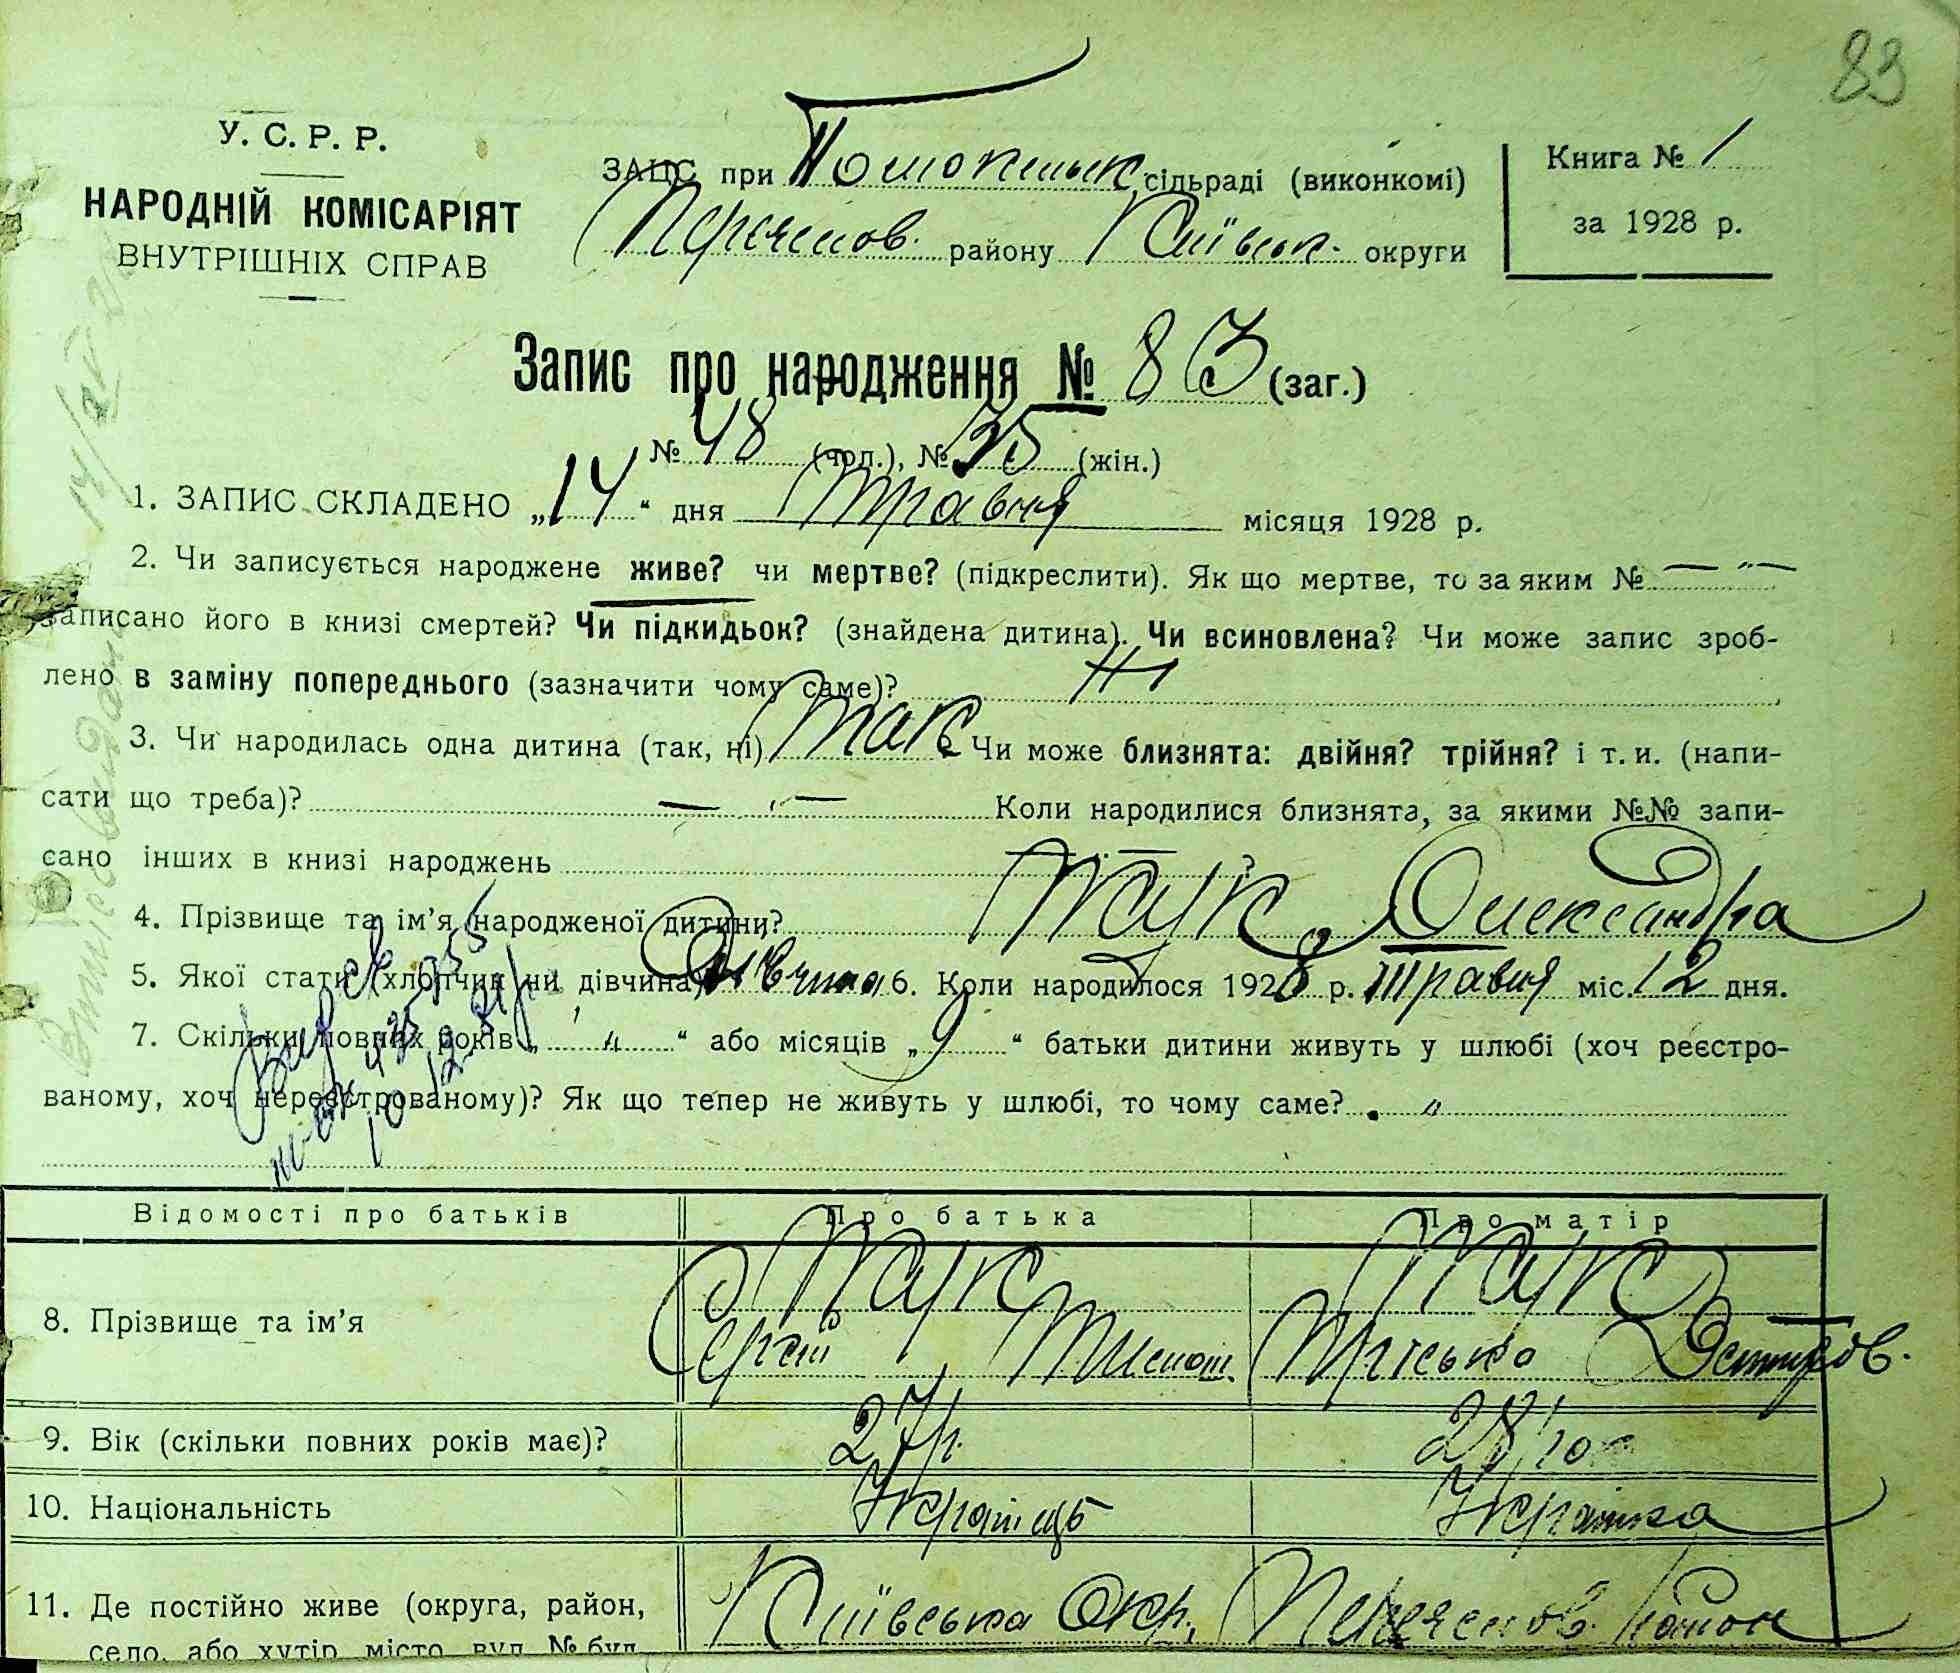 83
У. С. Р. Р.
НАРОДНІЙ КОМІСАРІЯТ
ВНУТРІШНІХ СПРАВ
ЗАЦС при сільраді (виконкомі)
району Київськ. округи
Книга № 1
за 1928 р.
Запис про народження № 83 (заг.)
№ 48 (чол.), № 35 (жін.)
1. ЗАПИС СКЛАДЕНО „14“ дня Травня місяця 1928 р.
2. Чи записується народжене живе? чи мертве? (підкреслити). Як що мертве, то за яким № — „ —
записано його в книзі смертей? Чи підкидьок? (знайдена дитина). Чи всиновлена? Чи може запис зроб-
лено в заміну попереднього (зазначити чому саме)?
3. Чи народилась одна дитина (так, ні) Так Чи може близнята: двійня? трійня? і т. и. (напи-
сати що треба)? — „ — Коли народилися близнята, за якими №№ запи-
сано інших в книзі народжень — „ — ?
4. Прізвище та ім’я народженої дитини? Таук Олександра
5. Якої стати (хлопчик чи дівчина) Дівчина 6. Коли народилося 1928 р. Травня міс. 12 дня.
7. Скільки повних років „ „ “ або місяців „9“ батьки дитини живуть у шлюбі (хоч реєстро-
ваному, хоч нереєстрованому)? Як що тепер не живуть у шлюбі, то чому саме? . „
Відомості про батьків Про батька Про матір
8. Прізвище та ім’я Таук Таук
Сергій
9. Вік (скільки повних років має)? 27 р. 28 рок
10. Національність Українець Українка
11. Де постійно живе (округа, район, Київська Окр. Переяслов. Район
село, або хутір, місто, вул. № буд.